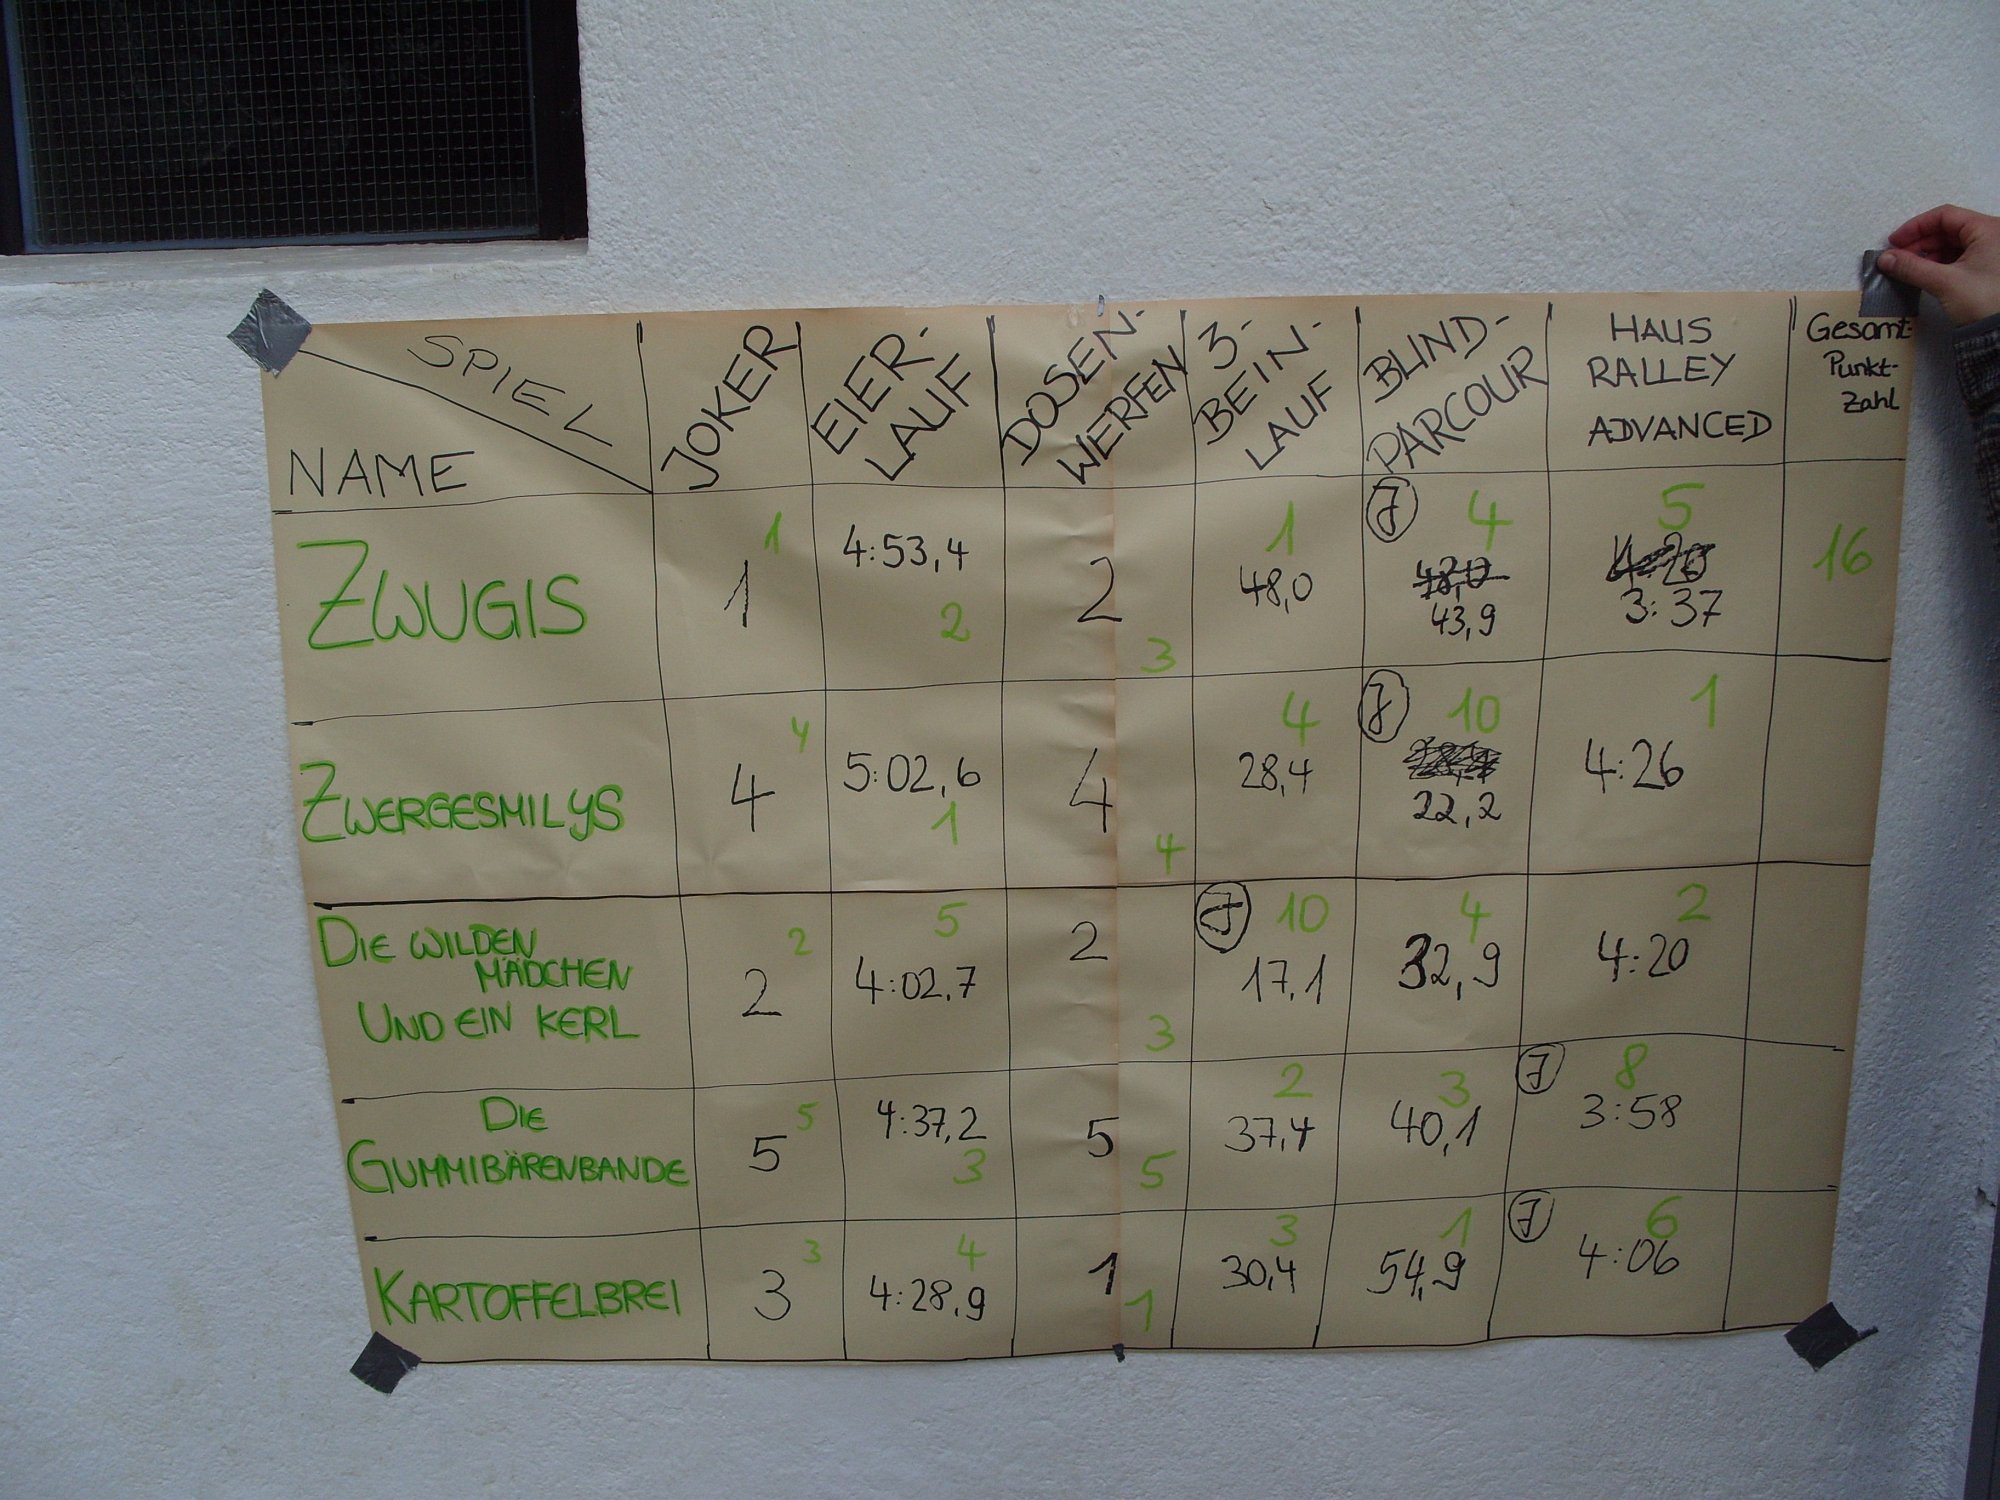 SPIEL
NAME
JOKER
EIER-
LAUF
DOSEN-
WERFEN
3-
BEIN-
LAUF
BLIND-
PARCOUR
HAUS
RALLEY
ADVANCED
Gesamt-
Punkt-
Zahl
ZWUGIS
1
1
4:53,4
2
2
3
1
48,0
J
4
48,0
43,9
5
4:26
3:37
16
ZWERGESMILYS
4
4
5:02,6
1
4
4
4
28,4
J
10
22,2
1
4:26
DIE WILDEN
MÄDCHEN
UND EIN KERL
2
2
5
4:02,7
2
3
J
10
17,1
4
32,9
2
4:20
DIE
GUMMIBÄRENBANDE
5
5
4:37,2
3
5
5
2
37,4
3
40,1
J
8
3:58
KARTOFFELBREI
3
3
4
4:28,9
1
1
3
30,4
1
54,9
J
6
4:06